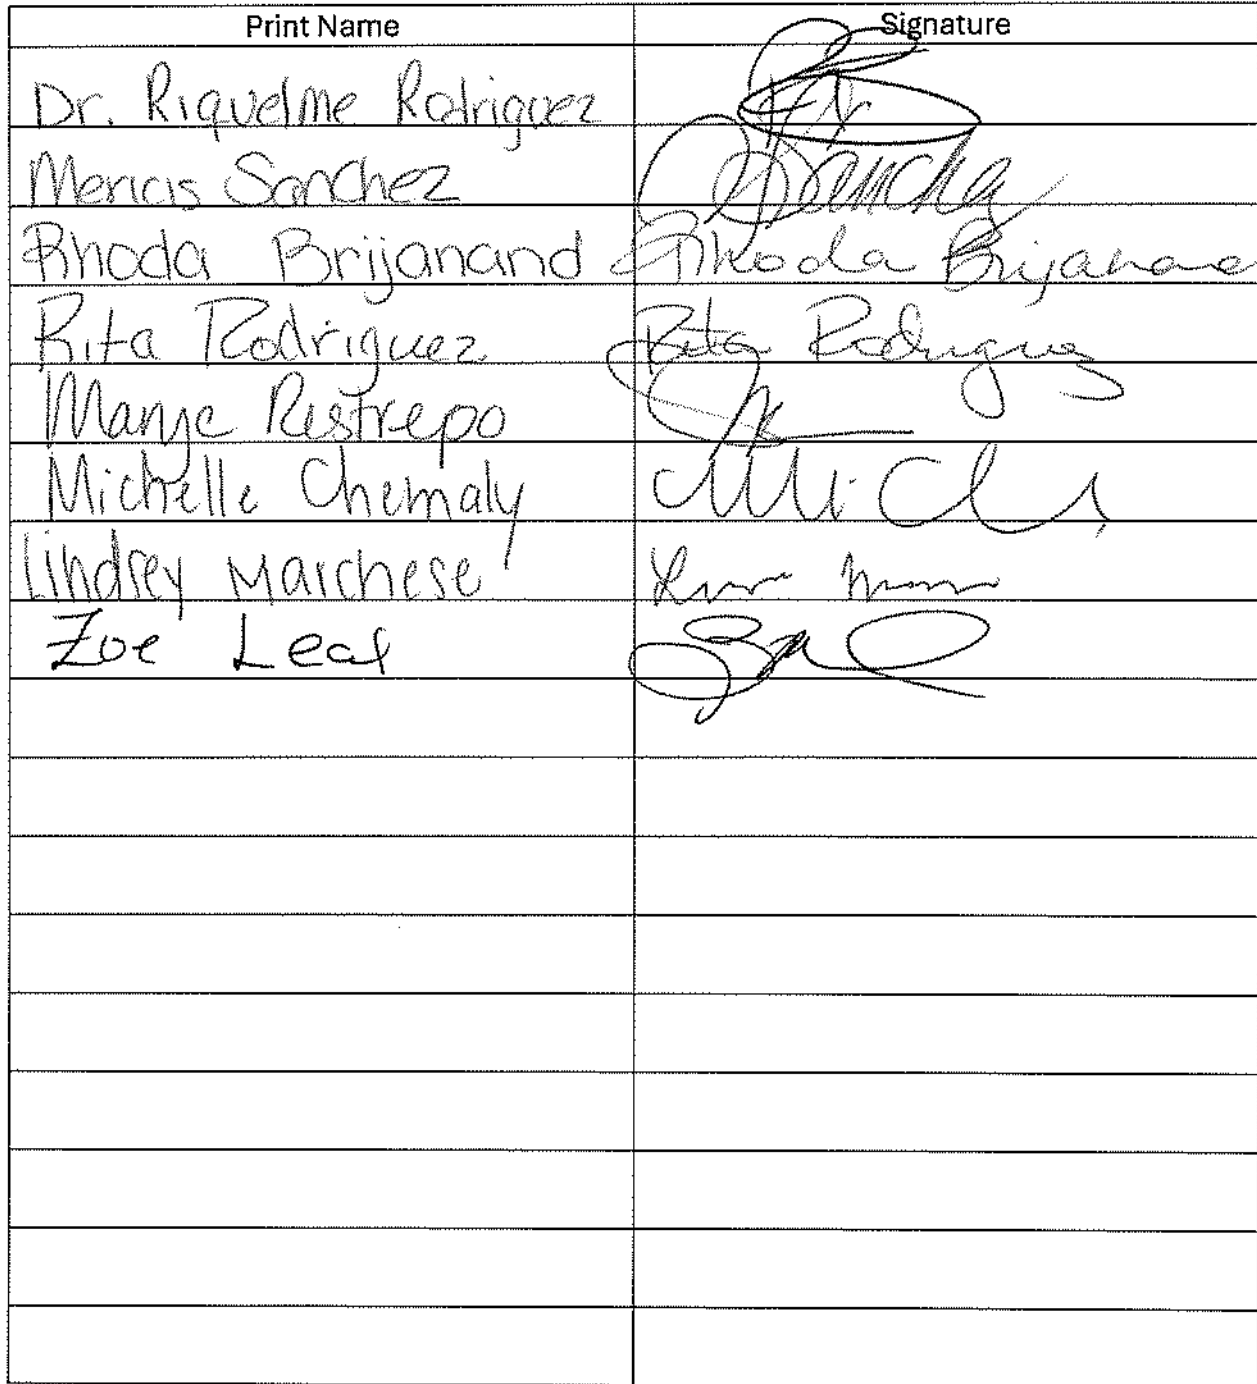 Print Name Signature
Dr. Riquelme Rodriguez
Sanchez
Rhoda Brijanand Rhoda Brijanand
Rita Rodriguez Rita Rodriguez
Restrepo
Michelle Chemaly
Lindsey Marchese
Zoe Leaf